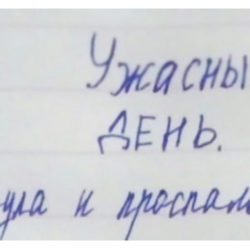 Ужасны
ДЕНЬ.
ула и проспала